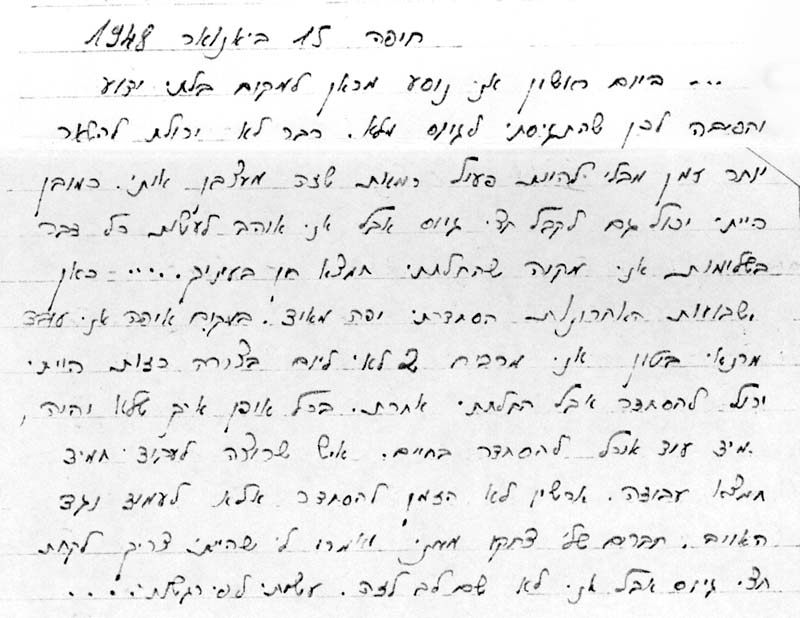 חיפה 15 ביאנואר 1948
... ביום ראשון אני נוסע מכאן למקום בלתי ידוע
והסיבה לכן שהתגיסתי לגיוס מלא. כבר לא יכולת להשאר
יותר זמן מבלי להיות פעיל רמאת שזה מעצבן אותי. כמובן
הייתי יכול גם לקבל חצי גיוס אבל אני אוהב לעשות כל דבר
בשלימות אני מקוה שהחלתתי תמצא חן בעיניך..... כאן
שבועות האחרונות הסתדרתי יפה מאיצ. במקום איפה אני עובד
מתנאי ביטון אני מרביח ליום בצורה כזות הייתי
יכול להסתדר אבל החלתתי אחרת. בכל אופן איך שלא יהיה,
תמיצ עוד אוכל להסתדר בחיים. איש שרוצה לעבוצ תמיצ
תמצא עבודה. עכשיו לא הזמן להסתדר אלא לעמוצ נגד
האויב. חברים שלי צחקו ממני ואמרו לי שהייתי צריך לקחת
חצי גיוס אבל אני לא שם לב לזה. עשיתי לפי רגשותי.....